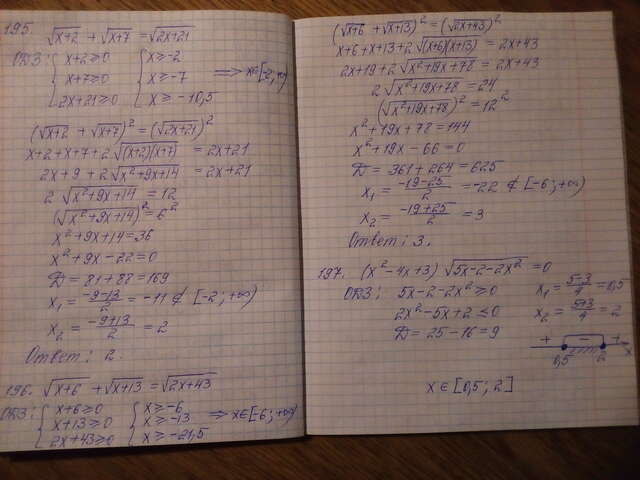 195. √x+2 + √x+7 = √2x+21
ОДЗ: { x+2≥0 { x≥-2
x+7≥0 x≥-7 ⟹ x∈[-2;+∞)
2x+21≥0 x≥-10,5
(√x+2 + √x+7)² = (√2x+21)²
x+2+x+7+2√(x+2)(x+7) = 2x+21
2x+9+2√x²+9x+14 = 2x+21
2√x²+9x+14 = 12
(√x²+9x+14)² = 6²
x²+9x+14=36
x²+9x-22=0
D=81+88=169
x₁ = -9-13/2 = -11 ∉ [-2;+∞)
x₂ = -9+13/2 = 2
Ответ: 2.
196. √x+6 + √x+13 = √2x+43
ОДЗ: { x+6≥0 { x≥-6
x+13≥0 x≥-13 ⟹ x∈[-6;+∞)
2x+43≥0 x≥-21,5
(√x+6 + √x+13)² = (√2x+43)²
x+6+x+13+2√(x+6)(x+13) = 2x+43
2x+19+2√x²+19x+78 = 2x+43
2√x²+19x+78 = 24
(√x²+19x+78)² = 12²
x²+19x+78=144
x²+19x-66=0
D=361+264=625
x₁ = -19-25/2 = -22 ∉ [-6;+∞)
x₂ = -19+25/2 = 3
Ответ: 3.
197. (x²-4x+3)√5x-2-2x² = 0
ОДЗ: 5x-2-2x²≥0 x₁ = 5-3/4 = 0,5
2x²-5x+2≤0 x₂ = 5+3/4 = 2
D=25-16=9
+ - +
0,5 2 x
x∈[0,5; 2]